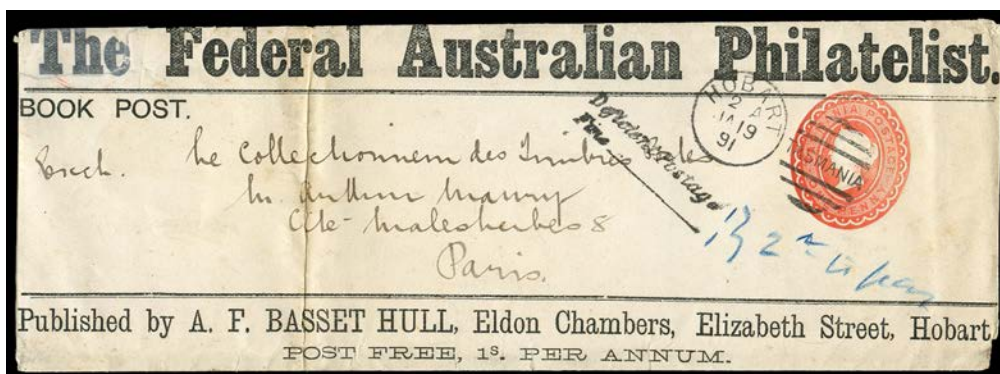 The Federal Australian Philatelist.
BOOK POST.
HOBART
2 A
JA 19
91
TASMANIA
Deficient Postage
Fine
Exch. Le Collectionneur des Timbres Postes
M. Arthur Maury
Cité Malesherbes 8
Paris.
Published by A. F. BASSET HULL, Eldon Chambers, Elizabeth Street, Hobart.
POST FREE, 1s. PER ANNUM.